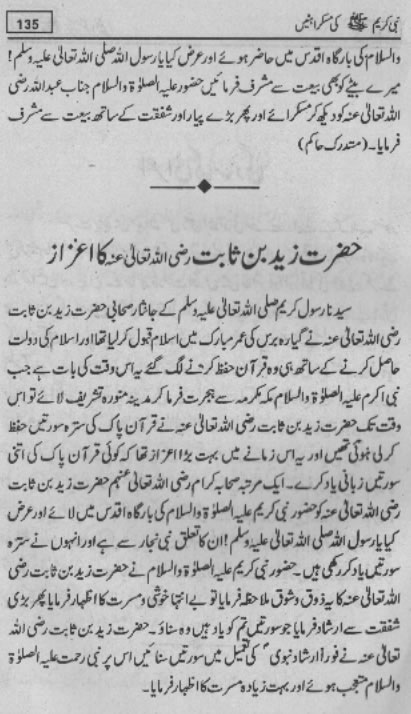 نبی کریم ﷺ کی مسکراہٹیں
135
والسلام کی بارگاہ اقدس میں حاضر ہوئے اور عرض کیا یا رسول اللہ صلی اللہ تعالیٰ علیہ وسلم!
میرے بیٹے کو بھی بیعت سے مشرف فرمائیں حضور علیہ الصلوٰۃ والسلام جناب عبداللہ رضی
اللہ تعالیٰ عنہ کو دیکھ کر مسکرائے اور پھر بڑے پیار اور شفقت کے ساتھ بیعت سے مشرف
فرمایا۔ (مستدرک حاکم)
حضرت زید بن ثابت رضی اللہ تعالیٰ عنہ کا اعزاز
سیدنا رسول کریم صلی اللہ تعالیٰ علیہ وسلم کے جانثار صحابی حضرت زید بن ثابت
رضی اللہ تعالیٰ عنہ نے گیارہ برس کی عمر مبارک میں اسلام قبول کر لیا تھا اور اسلام کی دولت
حاصل کرنے کے ساتھ ہی وہ قرآن حفظ کرنے لگ گئے یہ اس وقت کی بات ہے جب
نبی اکرم علیہ الصلوٰۃ والسلام مکہ مکرمہ سے ہجرت فرما کر مدینہ منورہ تشریف لائے تو اس
وقت تک حضرت زید بن ثابت رضی اللہ تعالیٰ عنہ نے قرآن پاک کی سترہ سورتیں حفظ
کر لی ہوئی تھیں اور یہ اس زمانے میں بہت بڑا اعزاز تھا کہ کوئی قرآن پاک کی اتنی
سورتیں زبانی یاد کرے۔ ایک مرتبہ صحابہ کرام رضی اللہ تعالیٰ عنہم حضرت زید بن ثابت
رضی اللہ تعالیٰ عنہ کو حضور نبی کریم علیہ الصلوٰۃ والسلام کی بارگاہ اقدس میں لائے اور عرض
کیا یا رسول اللہ صلی اللہ تعالیٰ علیہ وسلم! ان کا تعلق بنی نجار سے ہے اور انہوں نے سترہ
سورتیں یاد کر رکھی ہیں۔ حضور نبی کریم علیہ الصلوٰۃ والسلام نے حضرت زید بن ثابت رضی
اللہ تعالیٰ عنہ کا یہ ذوق و شوق ملاحظہ فرمایا تو بے انتہا خوشی و مسرت کا اظہار فرمایا پھر بڑی
شفقت سے ارشاد فرمایا جو سورتیں تم کو یاد ہیں وہ سناؤ۔ حضرت زید بن ثابت رضی اللہ
تعالیٰ عنہ نے فوراً ارشاد نبوی کی تعمیل میں سورتیں سنائیں اس پر نبی رحمت علیہ الصلوٰۃ
والسلام متعجب ہوئے اور بہت زیادہ مسرت کا اظہار فرمایا۔